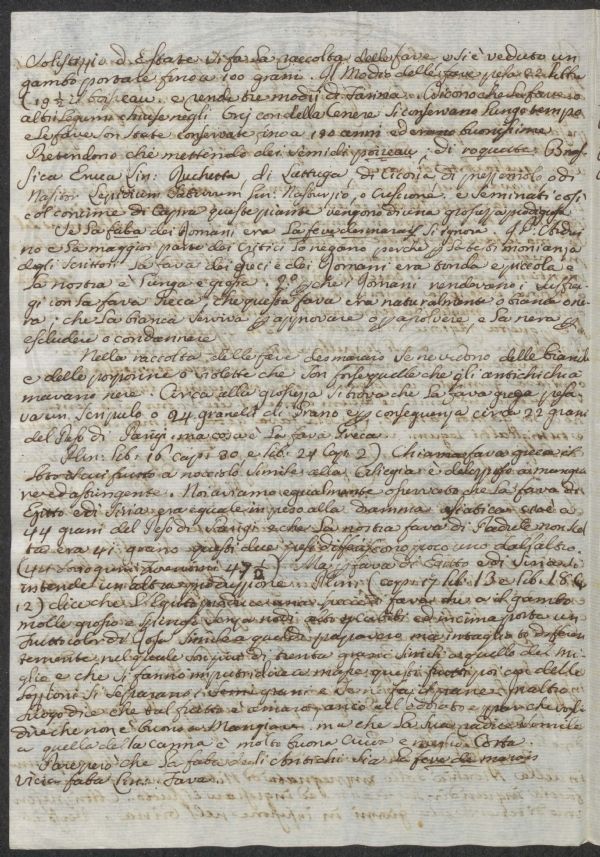 Solistizio d'Estate si fa la raccolta delle fave e si è veduto un
gambo portare fino a 100 grani. Il Modio delle fave pesa
e rende tre modij di farina. Dicono che le fave o
altri legumi chiuse negli Orci con della Cenere si conservano lungo tempo
e le fave son state conservate sino a 120 anni ed erano buonissime
Pretendono che mettendo dei semi di poireau, di roquette Bras-
sica Eruca Lin: Ruchetta di Lattuga, di Cicoria di prezzemolo o di
Nasitor Lepidium Sativum Lin: Nasturzio, o Crescione, e seminati così
col concime di Capra queste piante vengono di una grossezza prodigiosa
Se la faba dei Romani era la feve de marais s'ignora.
no e la maggior parte dei Critici lo negano perchè testimonianza
degli Scrittori la fava dei Greci e dei Romani era tonda e piccola e
la nostra è lunga e grossa. che i Romani rendevano i suffra-
gi con la fava Greca, che questa fava era naturalmente o bianca o ne-
ra, che la bianca serviva approvare o assolvere, e la nera
escludere o condannare
Nella raccolta delle feve de marais se ne vedono delle bianche
e delle porporine o violette che son forse quelle che gli antichi chia
mavano nere. Circa alla grossezza si trova che la fava greca pesa-
va un scrupulo o 24 granelli di grano e conseguenza circa 22 grani
del Peso di Parigi, ma cosa è la fava Greca
Plin: lib: 16 cap: 30 e lib: 24 Cap: 2) Chiama fava greca il
loto il cui frutto a nocciolo simile alla Ciliegia è
ed astringente. Noi aviamo egualmente osservato che la fava di
Egitto e di Siria era eguale in peso alla dramma
44 grani del Peso di Parigi e che la nostra fava di Padule
era 41 grano questi due pesi differiscono poco uno dall'altro.
Ma fava di Egitto e di Siria s'
intende un altra produzione. Plinio (cap: 17 lib: 13 e lib: 18 C
12) dice che l'Egitto produceva una specie di fava che a il gambo
molle grosso e senza nodi ed in cima porta un
frutto col di Coso simile a quello del papavero ma intagliato differen
temente nel quale son più di trenta grani simili a quelle del mi-
glio e che si fanno imputridire a mare questi frutti poi
si separano i semi grani e se ne fa il pane, in altro
luogo dice che tal frutto è amaro, anco all'odorato e
dire che non è buono a Mangiare. ma che la sua radice simile
a quella della canna è molto buona Cruda e Cotta.
che la faba degli antichi sia la feve de marais
Vicia faba Lin: Fava.